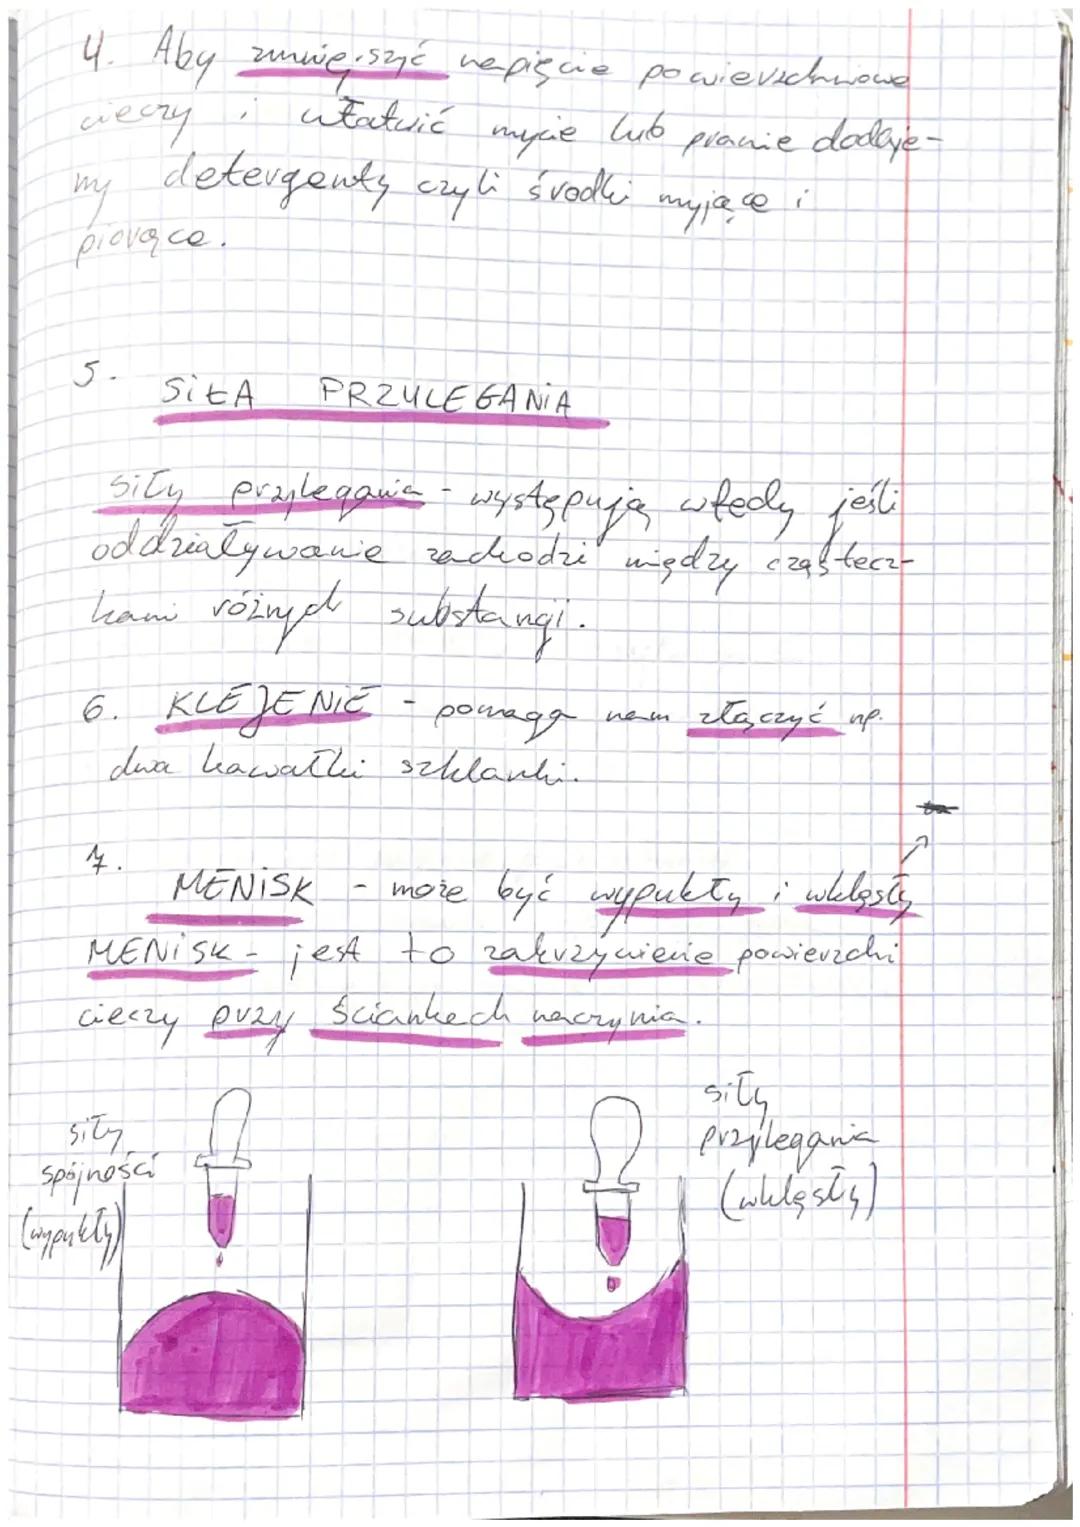 4. Aby zmniejszyć napięcie powierzchniowe
cieczy i ułatwić mycie lub pranie dodaje-
my detergenty czyli środki myjące i
piorące.
5. SIŁA PRZYLEGANIA
Siły przylegania - występują wtedy jeśli
oddziaływanie zachodzi między cząstecz-
kami różnych substancji.
6. KLEJENIE - pomaga nam złączyć np.
dwa kawałki szklanki.
7. MENISK - może być wypukły i wklęsły
MENISK - jest to zakrzywienie powierzchni
cieczy przy ściankach naczynia.
siły
spójności
(wypukły)
siły
przylegania
(wklęsły)